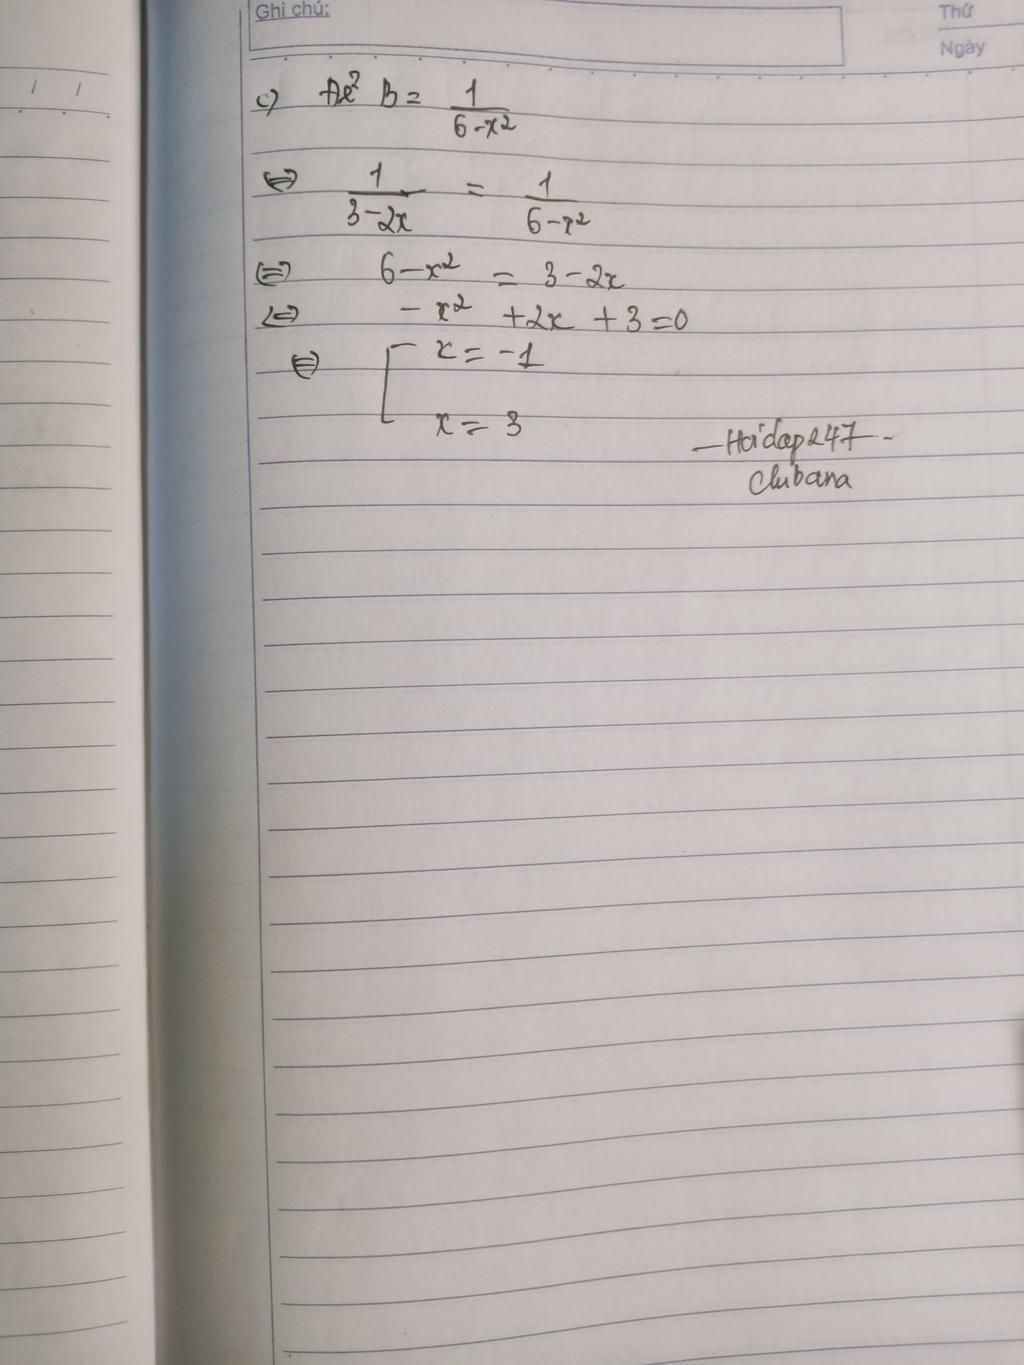 Ghi chú:
Thứ
Ngày
/ /
c) Để B = 1/(6-x²)
⇔ 1/(3-2x) = 1/(6-x²)
⇔ 6-x² = 3-2x
⇔ -x² +2x +3=0
⇔ [ x = -1
x = 3
-Hoidap247-
Chubana